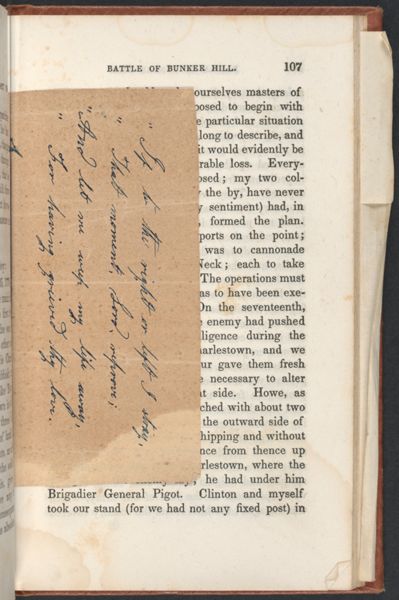 BATTLE OF BUNKER HILL. 107
ourselves masters of
posed to begin with
particular situation
long to describe, and
it would evidently be
rable loss. Every-
osed; my two col-
the by, have never
sentiment) had, in
, formed the plan.
ports on the point;
was to cannonade
Neck; each to take
The operations must
as to have been exe-
On the seventeenth,
enemy had pushed
ligence during the
arlestown, and we
ur gave them fresh
necessary to alter
at side. Howe, as
ched with about two
the outward side of
hipping and without
nce from thence up
rlestown, where the
he had under him
Brigadier General Pigot. Clinton and myself
took our stand (for we had not any fixed post) in
"If to the right or left I stray,
"That moment, Lord, reprove;
"And let me weep my life away,
"For having grieved thy love.